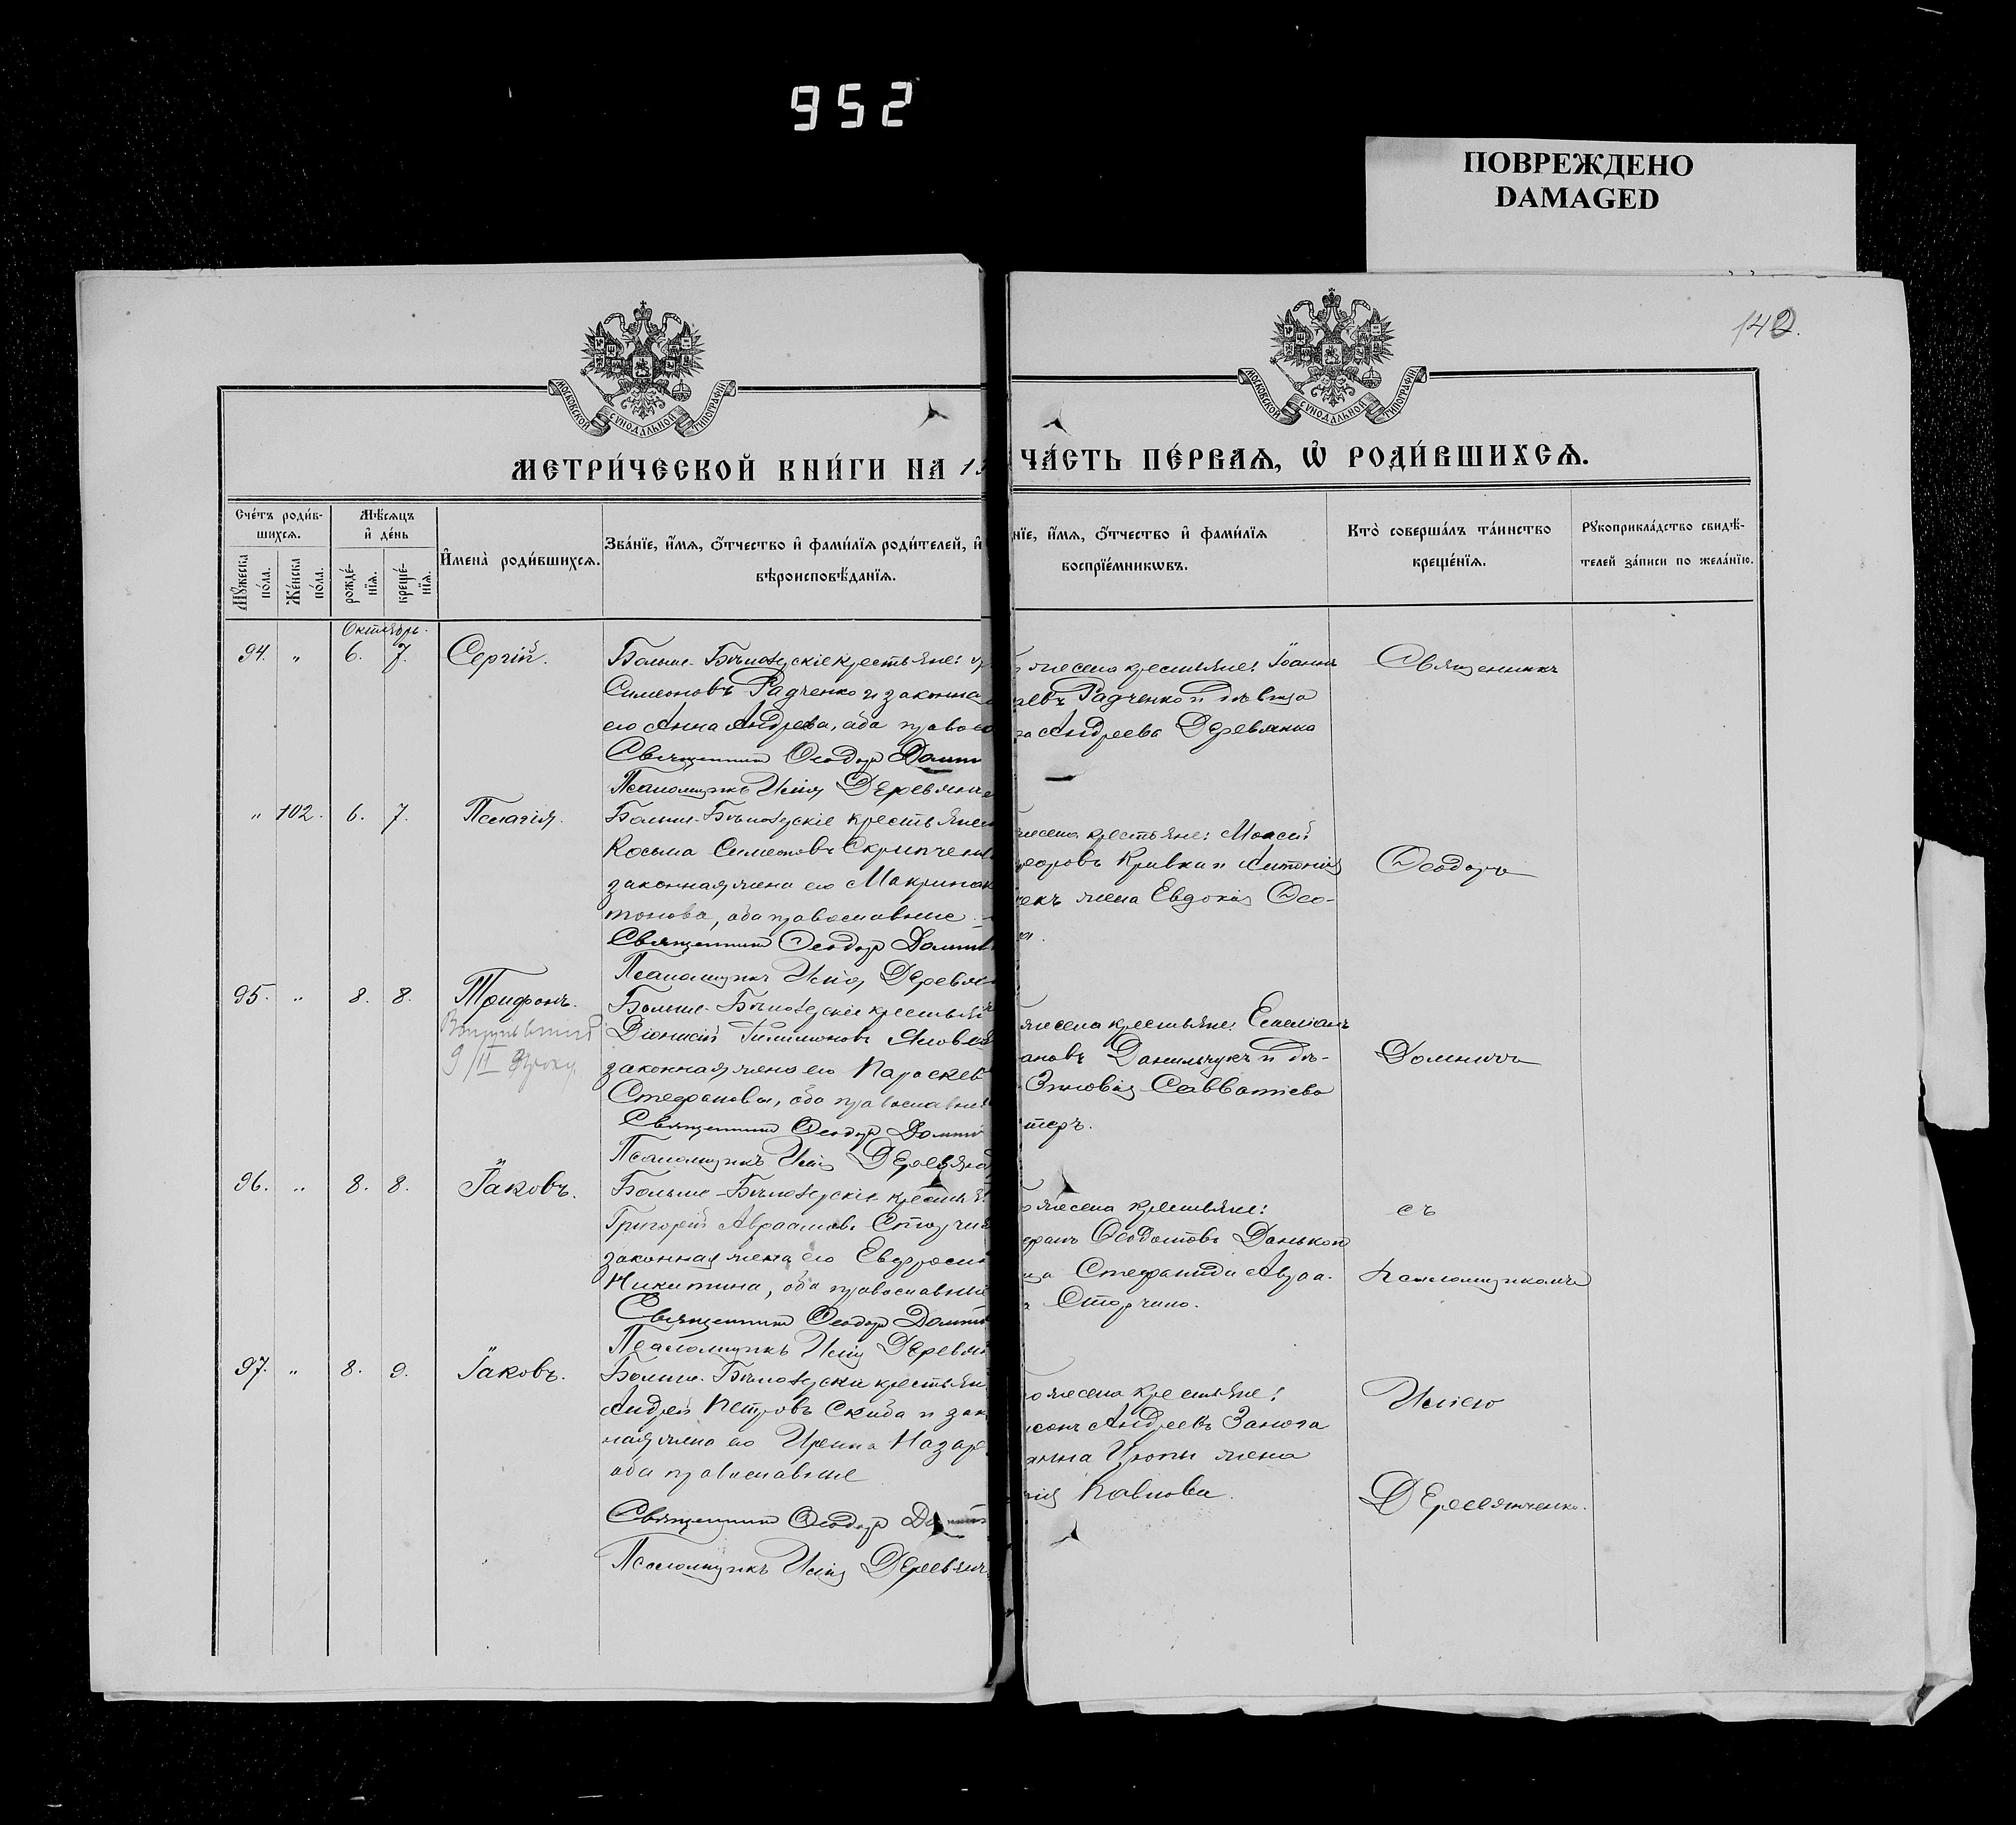 952
ПОВРЕЖДЕНО
DAMAGED
142.
МОСКОВСКОЙ СѴНОДАЛЬНОЙ ТИПОГРАФІИ
МОСКОВСКОЙ СѴНОДАЛЬНОЙ ТИПОГРАФІИ
МЕТРИ́ЧЕСКОЙ КНИ́ГИ НА 1
ЧА́СТЬ ПЕ́РВАѦ, Ѡ҆ РОДИ́ВШИХСѦ.
Сче́тъ роди́в-
шихсѧ.
Мꙋ́жеска по́ла.
Же́нска по́ла.
Мѣ́сѧцъ
и҆ де́нь
рожде́-нїѧ.
креще́-нїѧ.
И҆мена̀ роди́вшихсѧ.
Зва́нїе, и҆́мѧ, ѻ҆́тчество и҆ фами́лїѧ роди́телей, и҆
вѣроисповѣ́данїѧ.
нїе, и҆́мѧ, ѻ҆́тчество и҆ фами́лїѧ
воспрїе́мникѡвъ.
Кто̀ соверша́лъ та́инство
креще́нїѧ.
Рꙋкоприкла́дство свидѣ́-
телей за́писи по жела́нїю.
Октябрь.
94. " 6. 7. Сергій.
Больше-Бѣлозерскіе крестьяне:
Симеоновъ Радченко и законна
его Анна Андреева, оба правос
Священникъ Ѳеодоръ Домни
Псаломщикъ Илія Деревянче
же села крестьяне: Іоаннъ
аевъ Радченко и дѣвица
Андреева Деревянка
Священникъ
" 102. 6. 7. Пелагія.
Больше-Бѣлозерскіе крестьяне
Косьма Симеоновъ Скрипчен
законная жена его Макрина
това, оба православные
Священникъ Ѳеодоръ Домни
Псаломщикъ Илія Деревян
же села крестьяне: Моисей
еодоровъ Кривка и Антонія
жена Евдокія Ѳео-
Ѳеодоръ
95. " 8. 8. Трифонъ.
9/II
Больше-Бѣлозерскіе крестьян
Діонисій Филимоновъ Яловей
законная жена его Параскев
Стефанова, оба православные
Священникъ Ѳеодоръ Домни
Псаломщикъ Илія Деревян
же села крестьяне: Емеліанъ
ановъ Данильчукъ и дѣ-
Зиновія Савватіева
теръ.
Домничъ
96. " 8. 8. Іаковъ.
Больше-Бѣлозерскіе крестья
Григорій Авраамовъ Стор
законная жена его Евфроси
Никитина, оба православные
Священникъ Ѳеодоръ Домни
Псаломщикъ Илія Деревян
же села крестьяне:
Ѳеодотовъ Данько
ца Стефанида Авраа-
Сторчило.
съ
псаломщикомъ
97. " 8. 9. Іаковъ.
Больше-Бѣлозерскіе крестьян
Андрей Петровъ Скиба и зак
ная жена его Ирина Назар
оба православные
Священникъ Ѳеодоръ
Псаломщикъ Илія Деревянч
же села крестьяне:
Андреевъ Занога
жена
Павлова.
Иліею
Деревянченко.